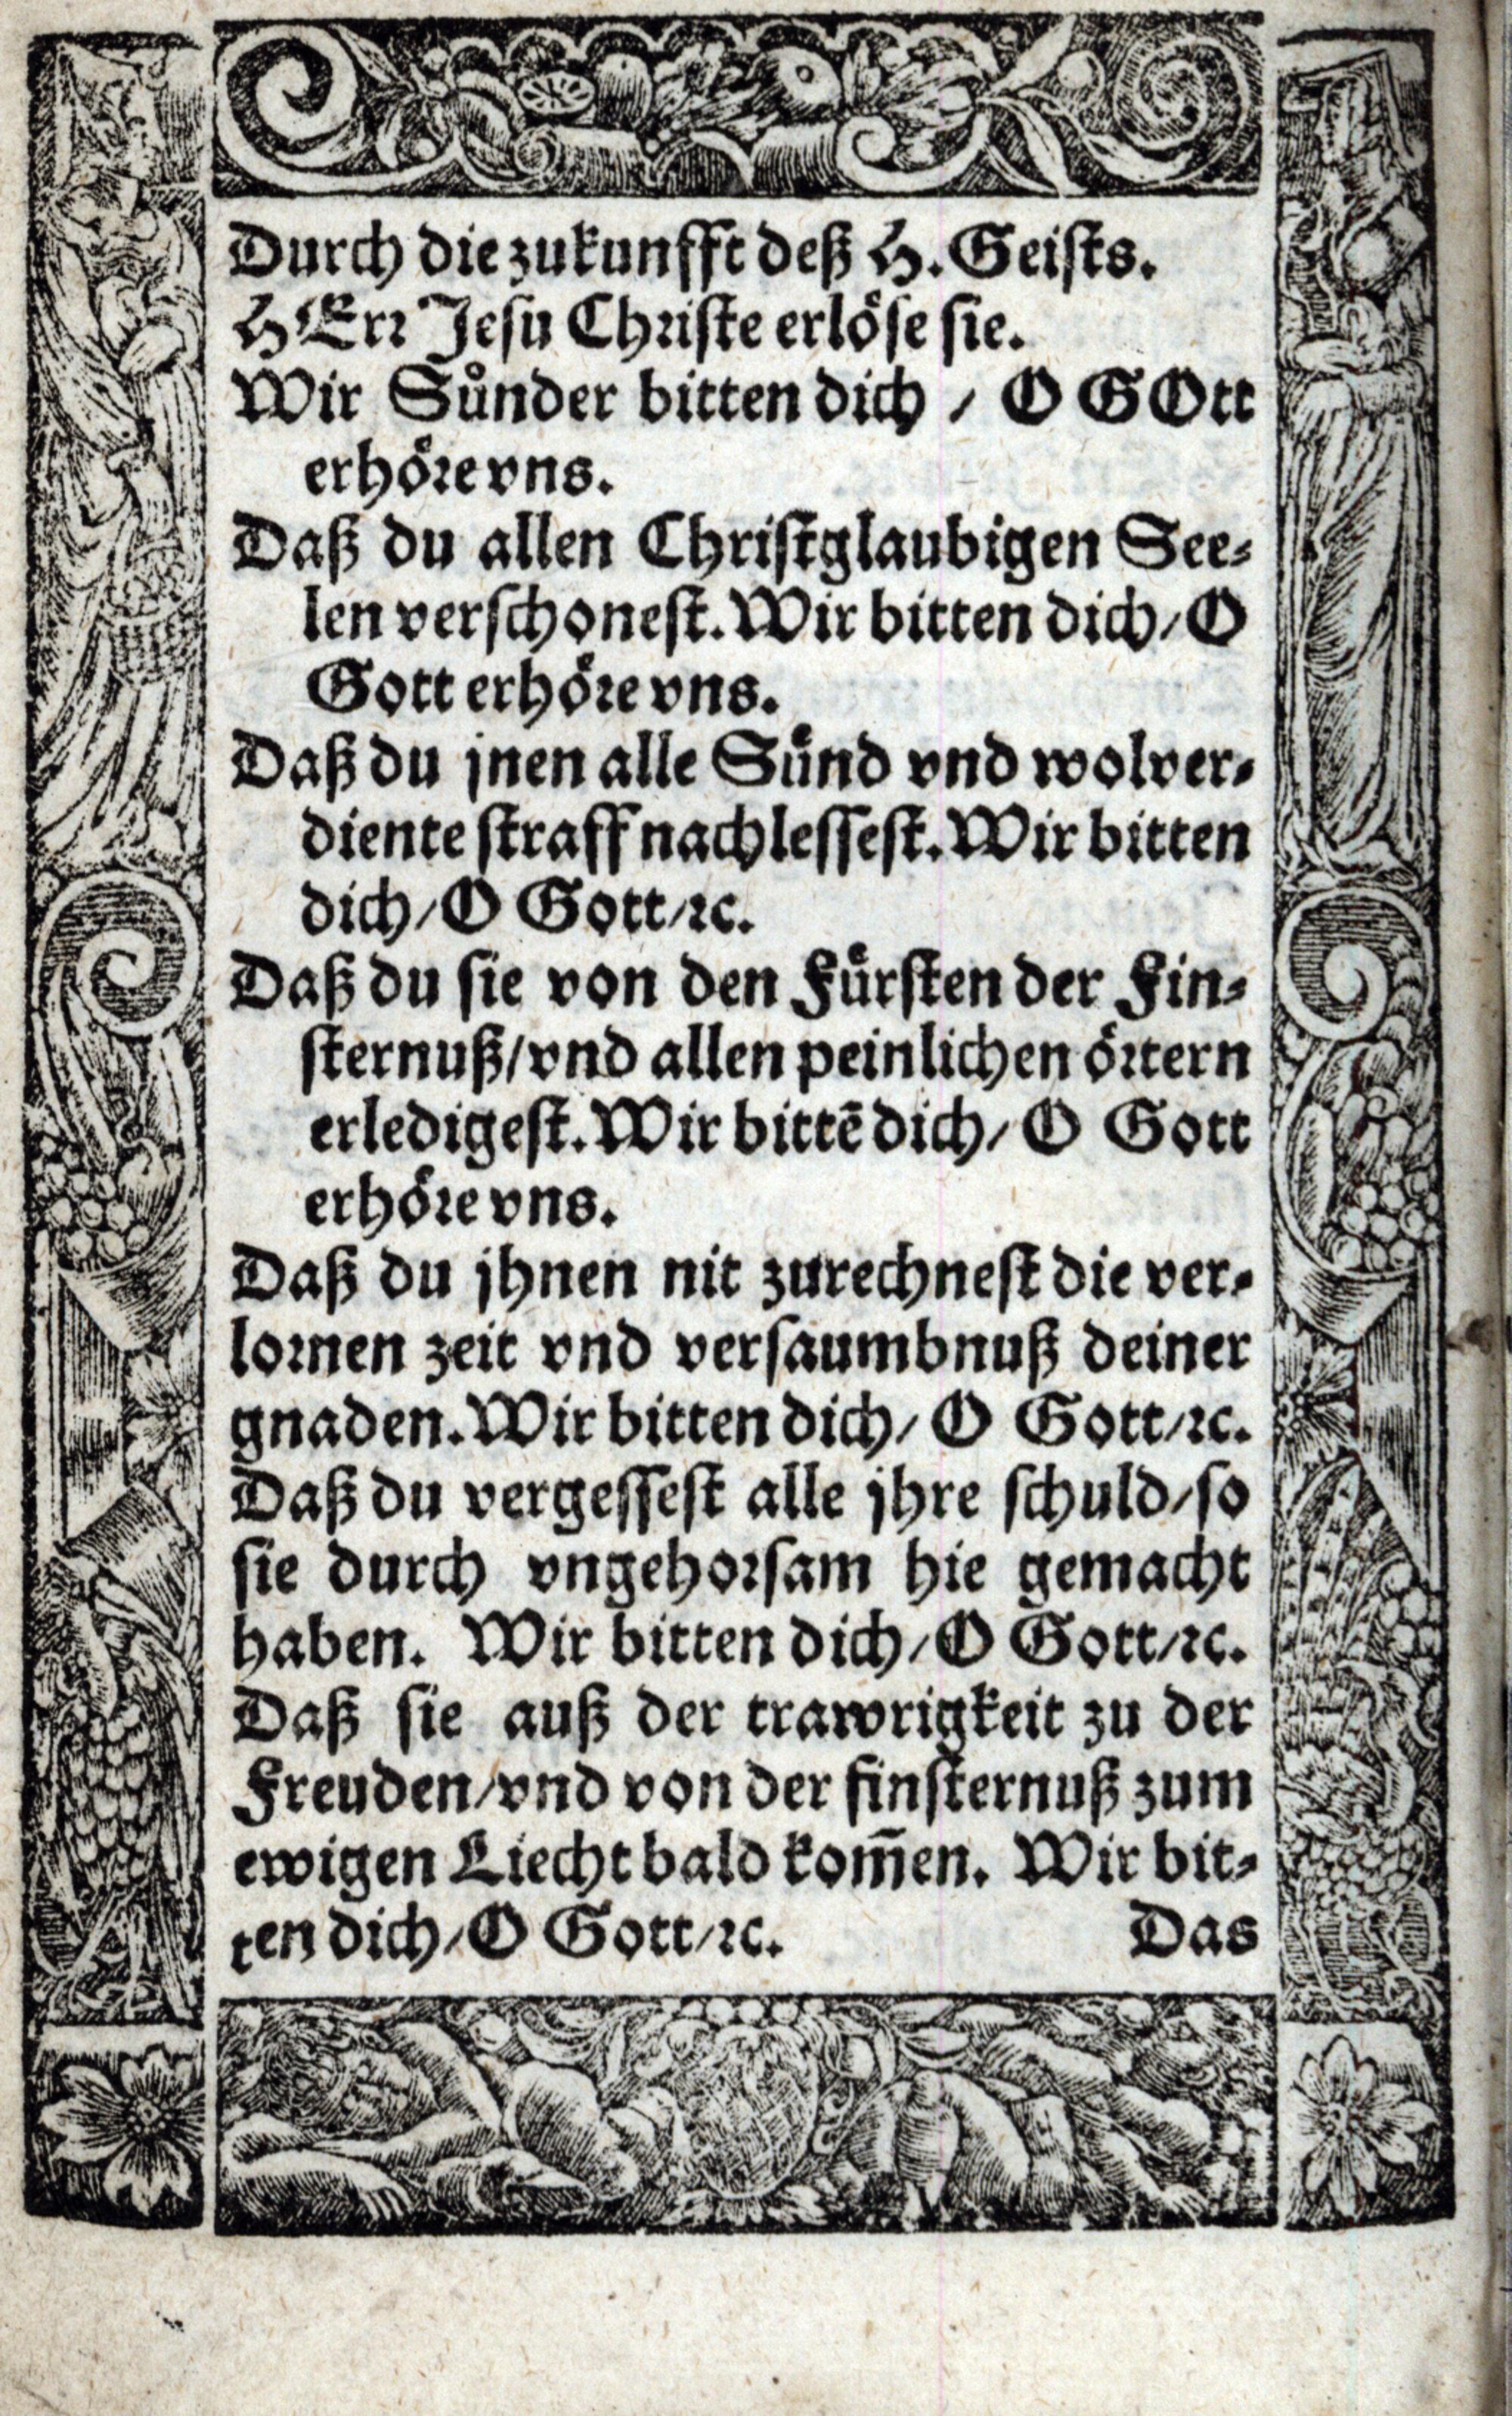 Durch die zukunfft deß H. Geists.
HErr Jesu Christe erlöse sie.
Wir Sůnder bitten dich / O GOtt
erhöre vns.
Daß du allen Christglaubigen See-
len verschonest. Wir bitten dich / O
Gott erhöre vns.
Daß du jnen alle Sünd vnd wolver-
diente straff nachlessest. Wir bitten
dich / O Gott / ꝛc.
Daß du sie von den Fürsten der Fin-
sternuß / vnd allen peinlichen örtern
erledigest. Wir bittē dich / O Gott
erhöre vns.
Daß du jhnen nit zurechnest die ver-
lornen zeit vnd versaumbnuß deiner
gnaden. Wir bitten dich / O Gott / ꝛc.
Daß du vergessest alle jhre schuld / so
sie durch vngehorsam hie gemacht
haben. Wir bitten dich / O Gott / ꝛc.
Daß sie auß der trawrigkeit zu der
Freuden / vnd von der finsternuß zum
ewigen Liecht bald kom̄en. Wir bit-
ten dich / O Gott / ꝛc. Das